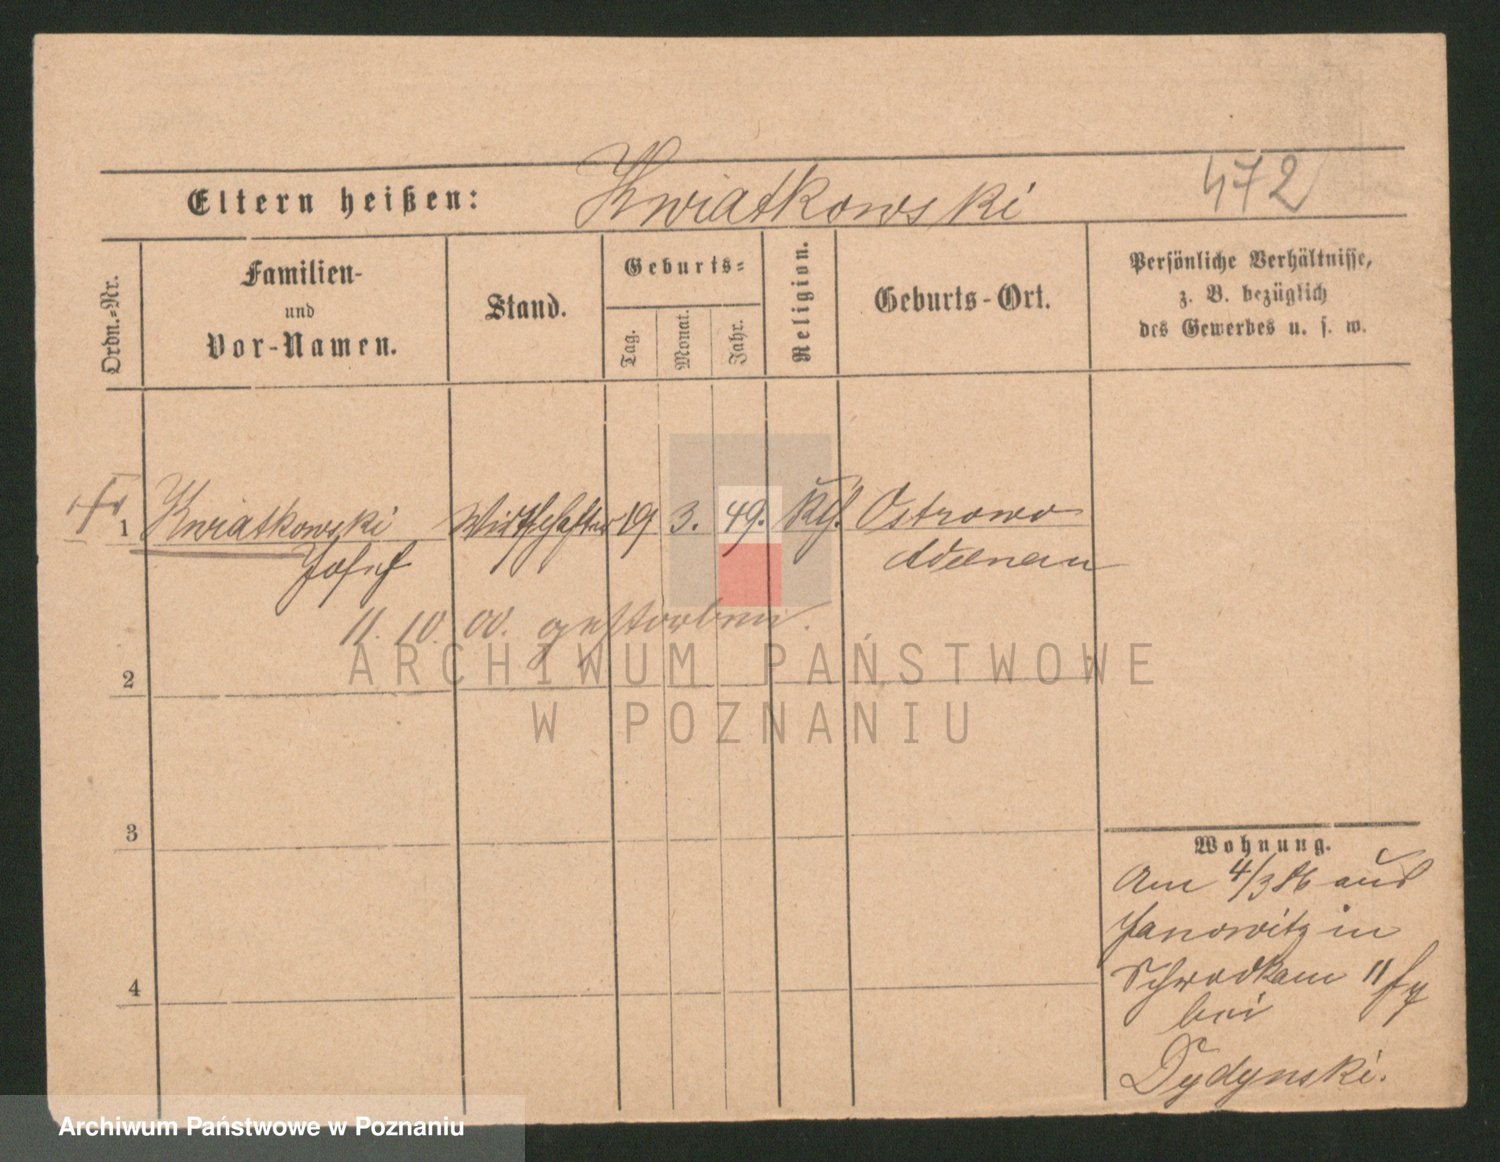 Eltern heißen: Kwiatkowski 472
Ordn.=Nr.
Familien-
und
Vor-Namen.
Stand.
Geburts=
Tag.
Monat.
Jahr.
Religion.
Geburts-Ort.
Persönliche Verhältnisse,
z. B. bezüglich
des Gewerbes u. s. w.
1 Kwiatkowski Wirthschafter 19 3. 49. Kth. Ostrowo
Josef Adelnau
11. 10. 00. gestorben.
2
3
4
Wohnung.
Am 4/3 86 aus
Janowitz in
11
bei
Dydynski.
ARCHIWUM PAŃSTWOWE
W POZNANIU
Archiwum Państwowe w Poznaniu